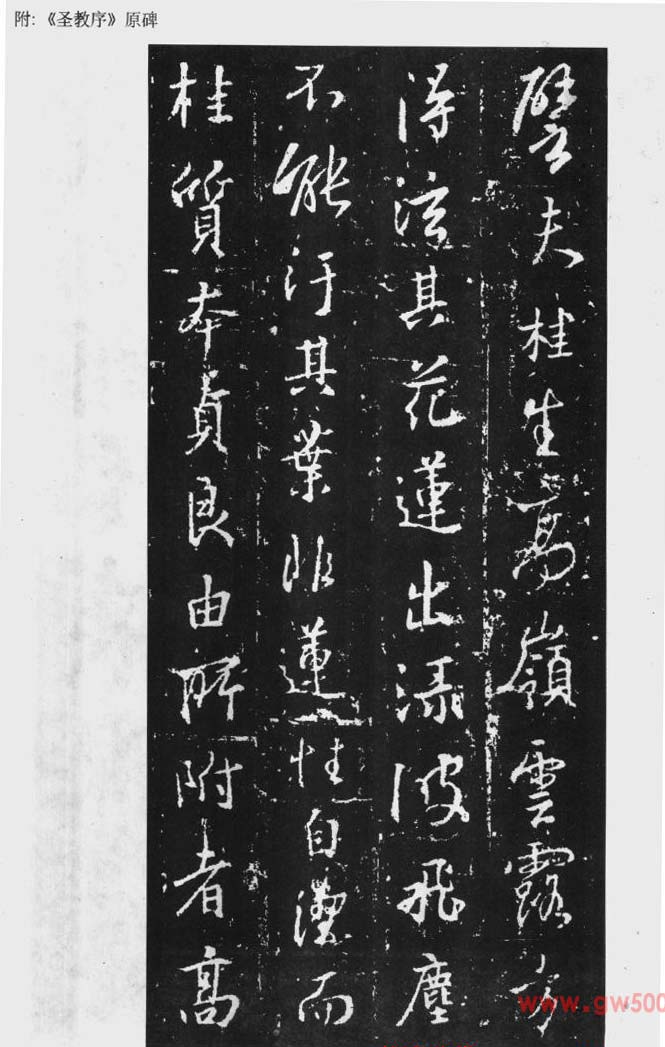 附:《圣教序》原碑
譬夫桂生高嶺雲露方
得泫其花蓮出淥波飛塵
不能汙其葉非蓮性自潔而
桂質本貞良由所附者高
www.gw500